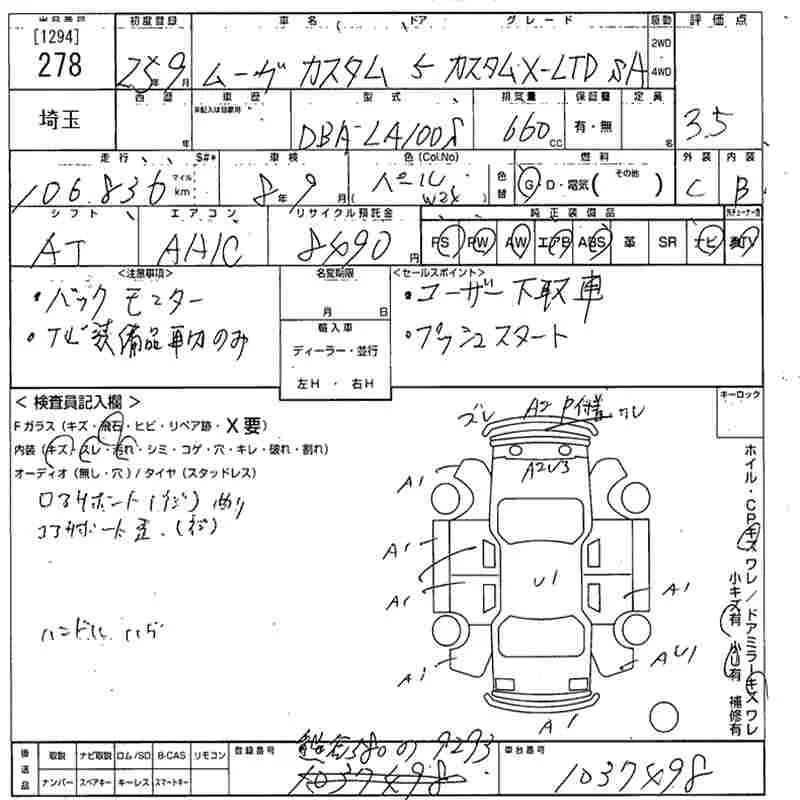 出品番号 初度登録 車名 ドア グレード 駆動 評価点
[1294]
278
25年9月 ムーヴ カスタム 5 カスタムX-LTD SA 2WD 4WD 3.5
西暦 車歴 型式 排気量 保証書 定員
未記入は自家用
埼玉 年 DBA-LA100S 660cc 有・無 名
走行 S#* 車検 色(Col.No) 色替 燃料 外装 内装
106.836 マイル km 8年9月 パール ( W24 ) G・D・電気( その他 ) C B
シフト エアコン リサイクル預託金 純正装備品
AT AAC 8490円 PS PW AW エアB ABS 革 SR ナビ TV
<注意事項> 名変期限 <セールスポイント>
・バックモニター 月 日 ・ユーザー下取車
・ナビ装備品車内のみ 輸入車 ・プッシュスタート
ディーラー・並行
左H ・ 右H
< 検査員記入欄 > キーロック
Fガラス (キズ・飛石・ヒビ・リペア跡・X要)
内装 (キズ・スレ・汚れ・シミ・コゲ・穴・キレ・破れ・割れ)
オーディオ (無し・穴) / タイヤ (スタッドレス)
ロアサポート (ネジ) 曲り
コアサポート歪 (ネジ)
ハンドル ハゲ
ズレ A2 P付着 ワレ
A2U3
A1
A1
A1 U1 A1
A1 AU1
A1
ホイル・CPキズ ワレ / ドアミラーキズ ワレ
小キズ有 小U有 補修有
後送品 取説 ナビ取説 ロム/SD B-CAS リモコン 登録番号 580 の 9293 車台番号
ナンバー スペアキー キーレス スマートキー 1037498 1037498